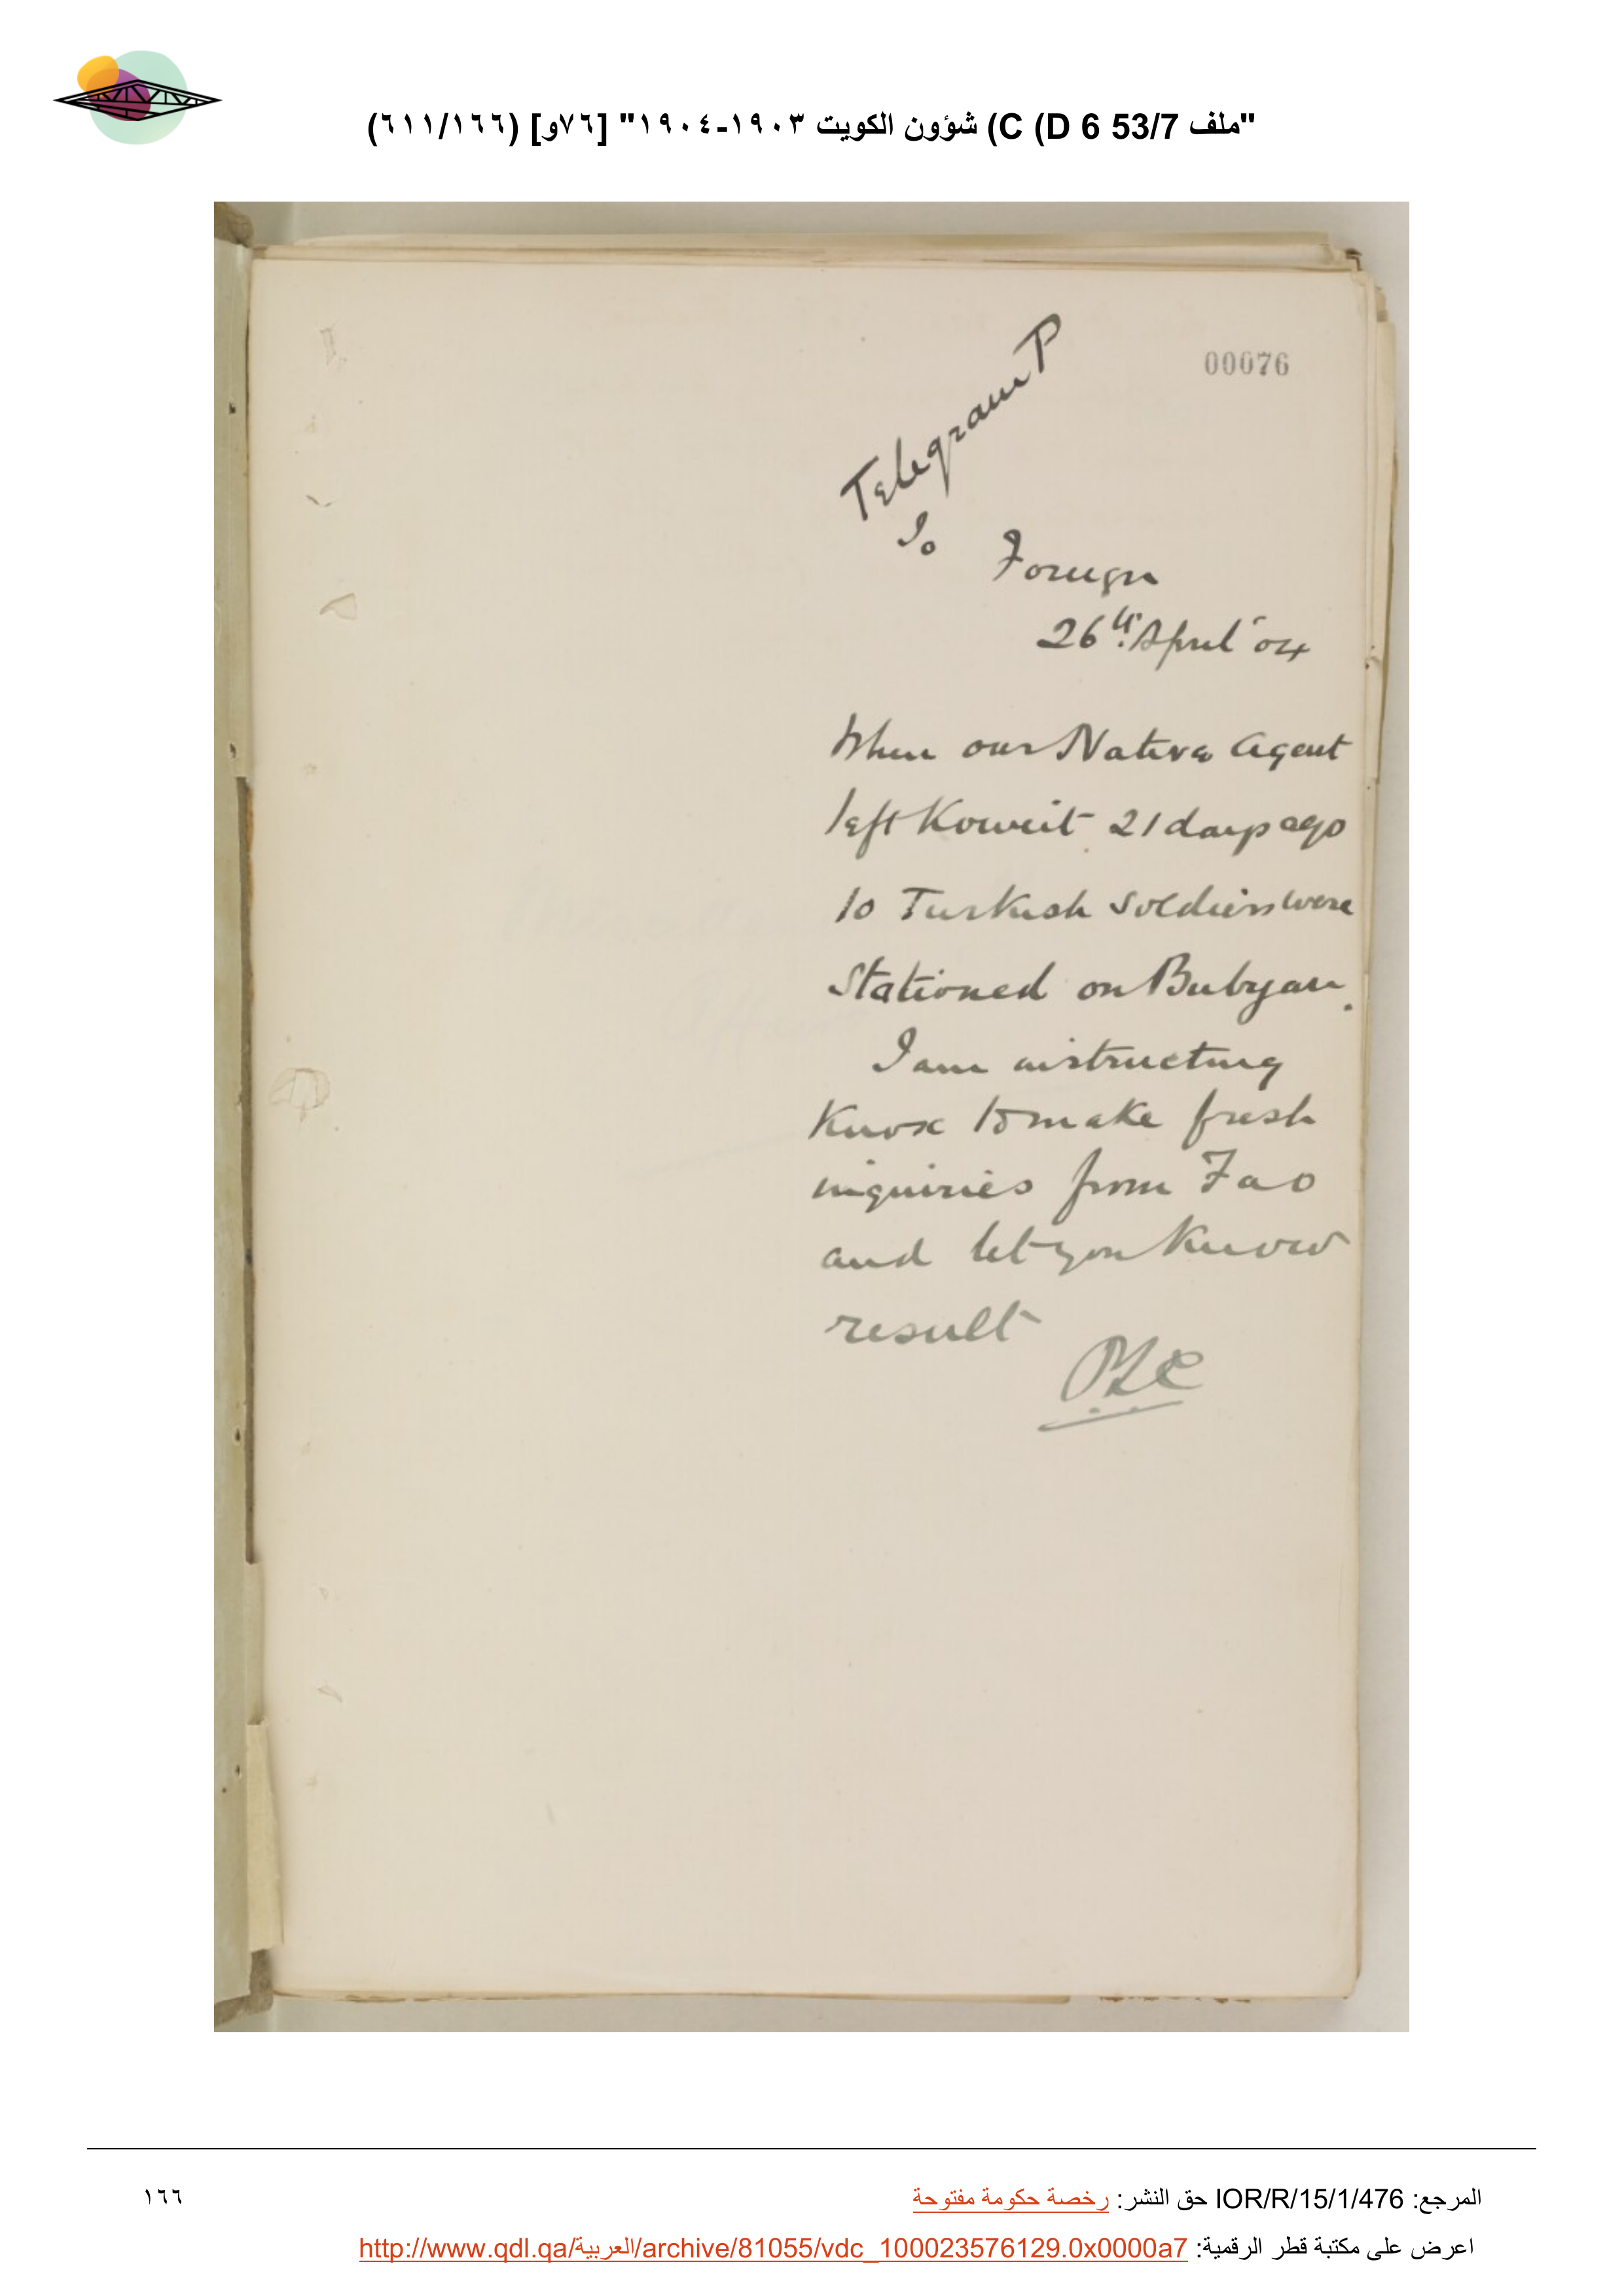 "ملف 53/7 D 6) C) شؤون الكويت ١٩٠٣-١٩٠٤" [٧٦و] (٦١١/١٦٦)
00076
Telegram P
To
Foreign
26th. April '04
When our Native Agent
left Koweit 21 days ago
10 Turkish soldiers were
stationed on Bubyan.
I am instructing
Knox to make fresh
inquiries from Fao
and let you know
result
PZC
المرجع: IOR/R/15/1/476 حق النشر: رخصة حكومة مفتوحة
اعرض على مكتبة قطر الرقمية: http://www.qdl.qa/العربية/archive/81055/vdc_100023576129.0x0000a7
١٦٦